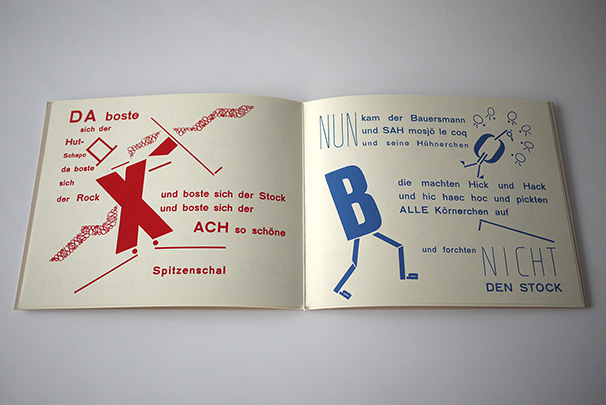 DA boste
sich der
Hut-
Schapo
da boste
sich
der Rock
X
und boste sich der Stock
und boste sich der
ACH so schöne
Spitzenschal
NUN kam der Bauersmann
und SAH mosjö le coq
und seine Hühnerchen
O
B
die machten Hick und Hack
und hic haec hoc und pickten
ALLE Körnerchen auf
und forchten NICHT
DEN STOCK